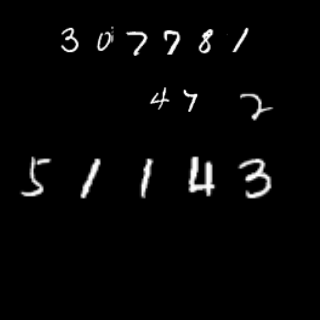 307781
472
51143